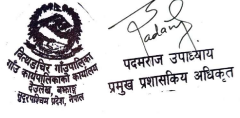 बित्थडचिर गाउँपालिका
गाउँ कार्यपालिकाको कार्यालय
देउलेख, बझाङ्ग
सुदूरपश्चिम प्रदेश, नेपाल
पदमराज उपाध्याय
प्रमुख प्रशासकिय अधिकृत